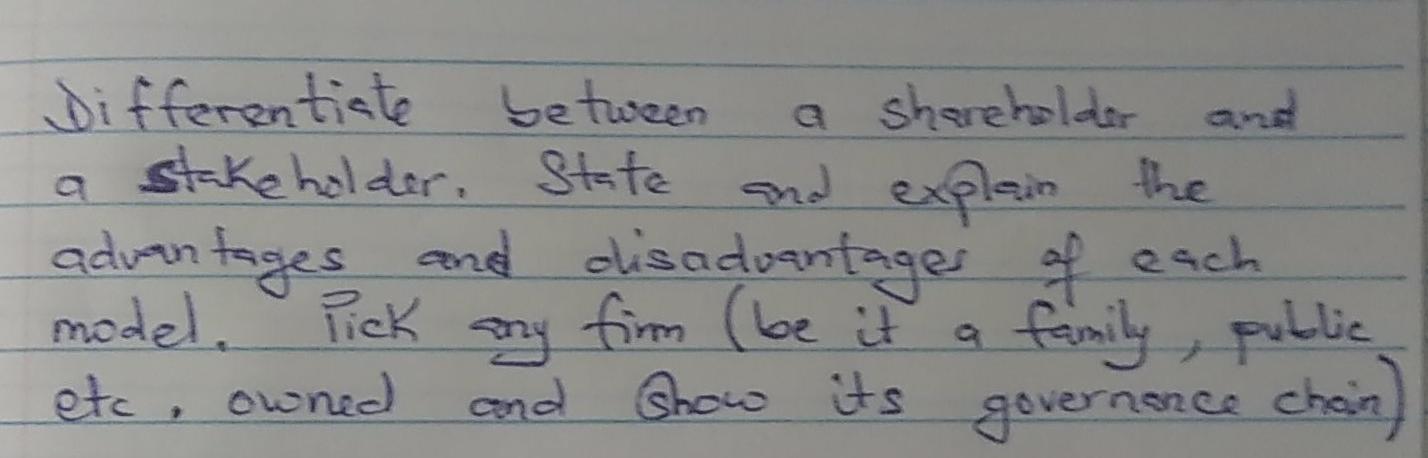 Differentiate between a shareholder and
a stakeholder. State and explain the
advantages and disadvantages of each
model. Pick any firm (be it a family, public
etc, owned and show its governance chain)